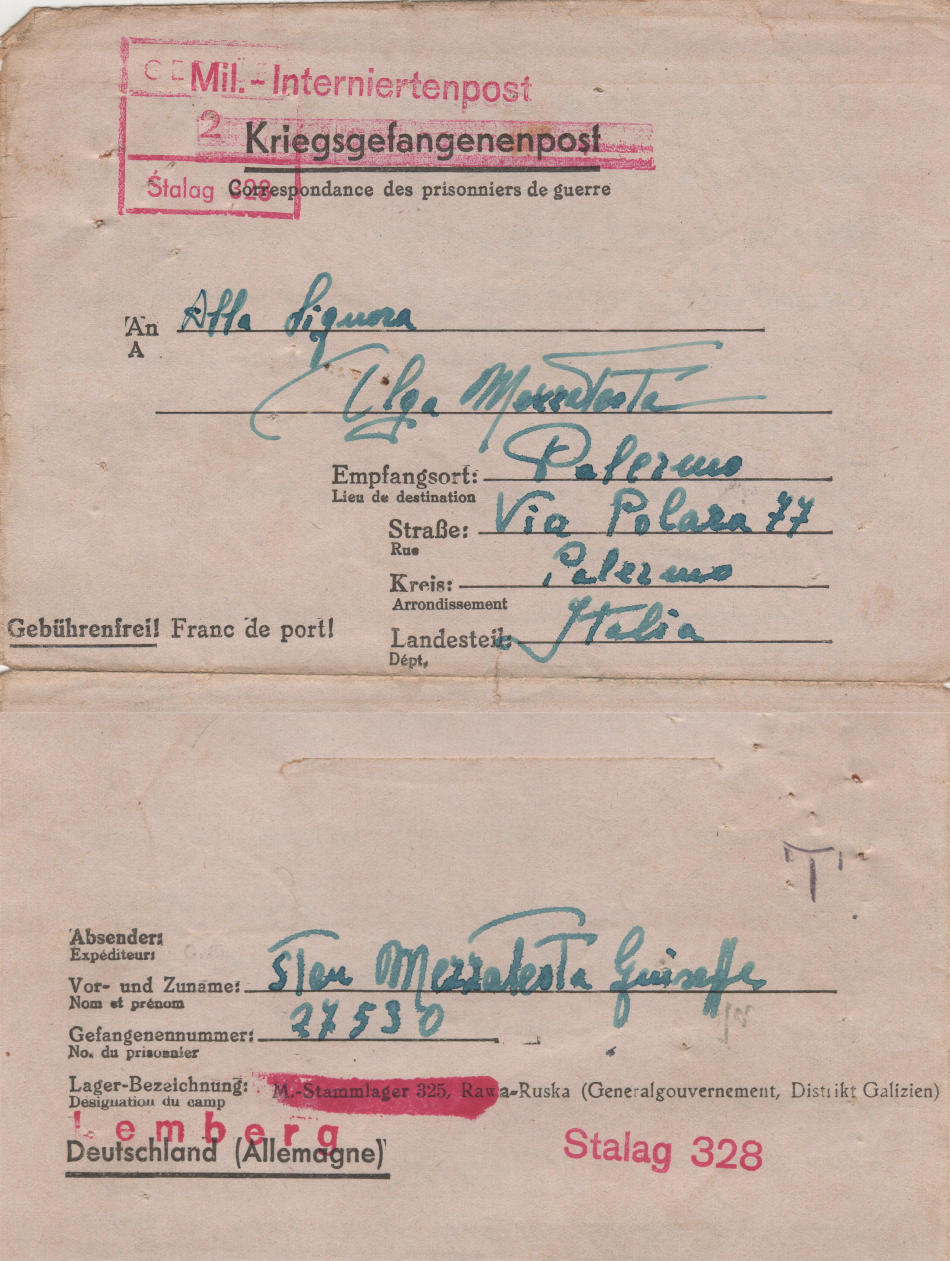 Mil.-Interniertenpost
2
Kriegsgefangenenpost
Stalag 328
Correspondance des prisonniers de guerre
An Alla Signora
A
Olga Mezzatesta
Empfangsort: Palermo
Lieu de destination
Straße: Via Polara 77
Rue
Kreis: Palermo
Arrondissement
Gebührenfrei! Franc de port!
Landesteil: Italia
Dépt.
T
Absender:
Expéditeur:
Vor- und Zuname: STen Mezzatesta Giuseppe
Nom et prénom
Gefangenennummer: 27530
No. du prisonnier
Lager-Bezeichnung: M.-Stammlager 325, Rawa-Ruska (Generalgouvernement, Distrikt Galizien)
Désignation du camp
Lemberg
Deutschland (Allemagne)
Stalag 328